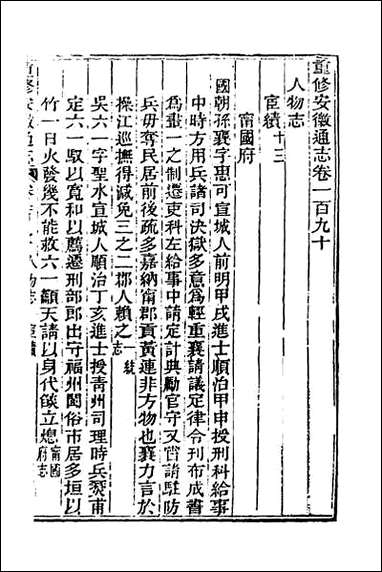 重修安徽通志卷一百九十
人物志
宦績十三
甯國府
國朝孫襄字惠可宣城人前明甲戌進士順治甲申授刑科給事
中時方用兵諸司決獄多意為輕重襄請議定律令刊布成書
為畫一之制遷吏科左給事中請定計典勵官守又嘗請駐防
兵毋奪民居前後疏多嘉納南郡貢黃連非方物也襄力言於
操江巡撫得減免三之二郡人賴之
吳六一字聖水宣城人順治丁亥進士授青州司理時兵燹甫
定六一馭以寬和以薦遷刑部郎出守福州閩俗市居多垣以
竹一日火發幾不能救六一顧天請以身代餤立熄府志